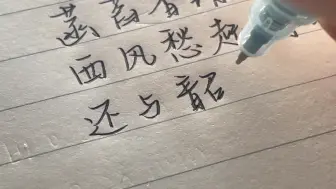 菡萏香
西风愁起
还与韶